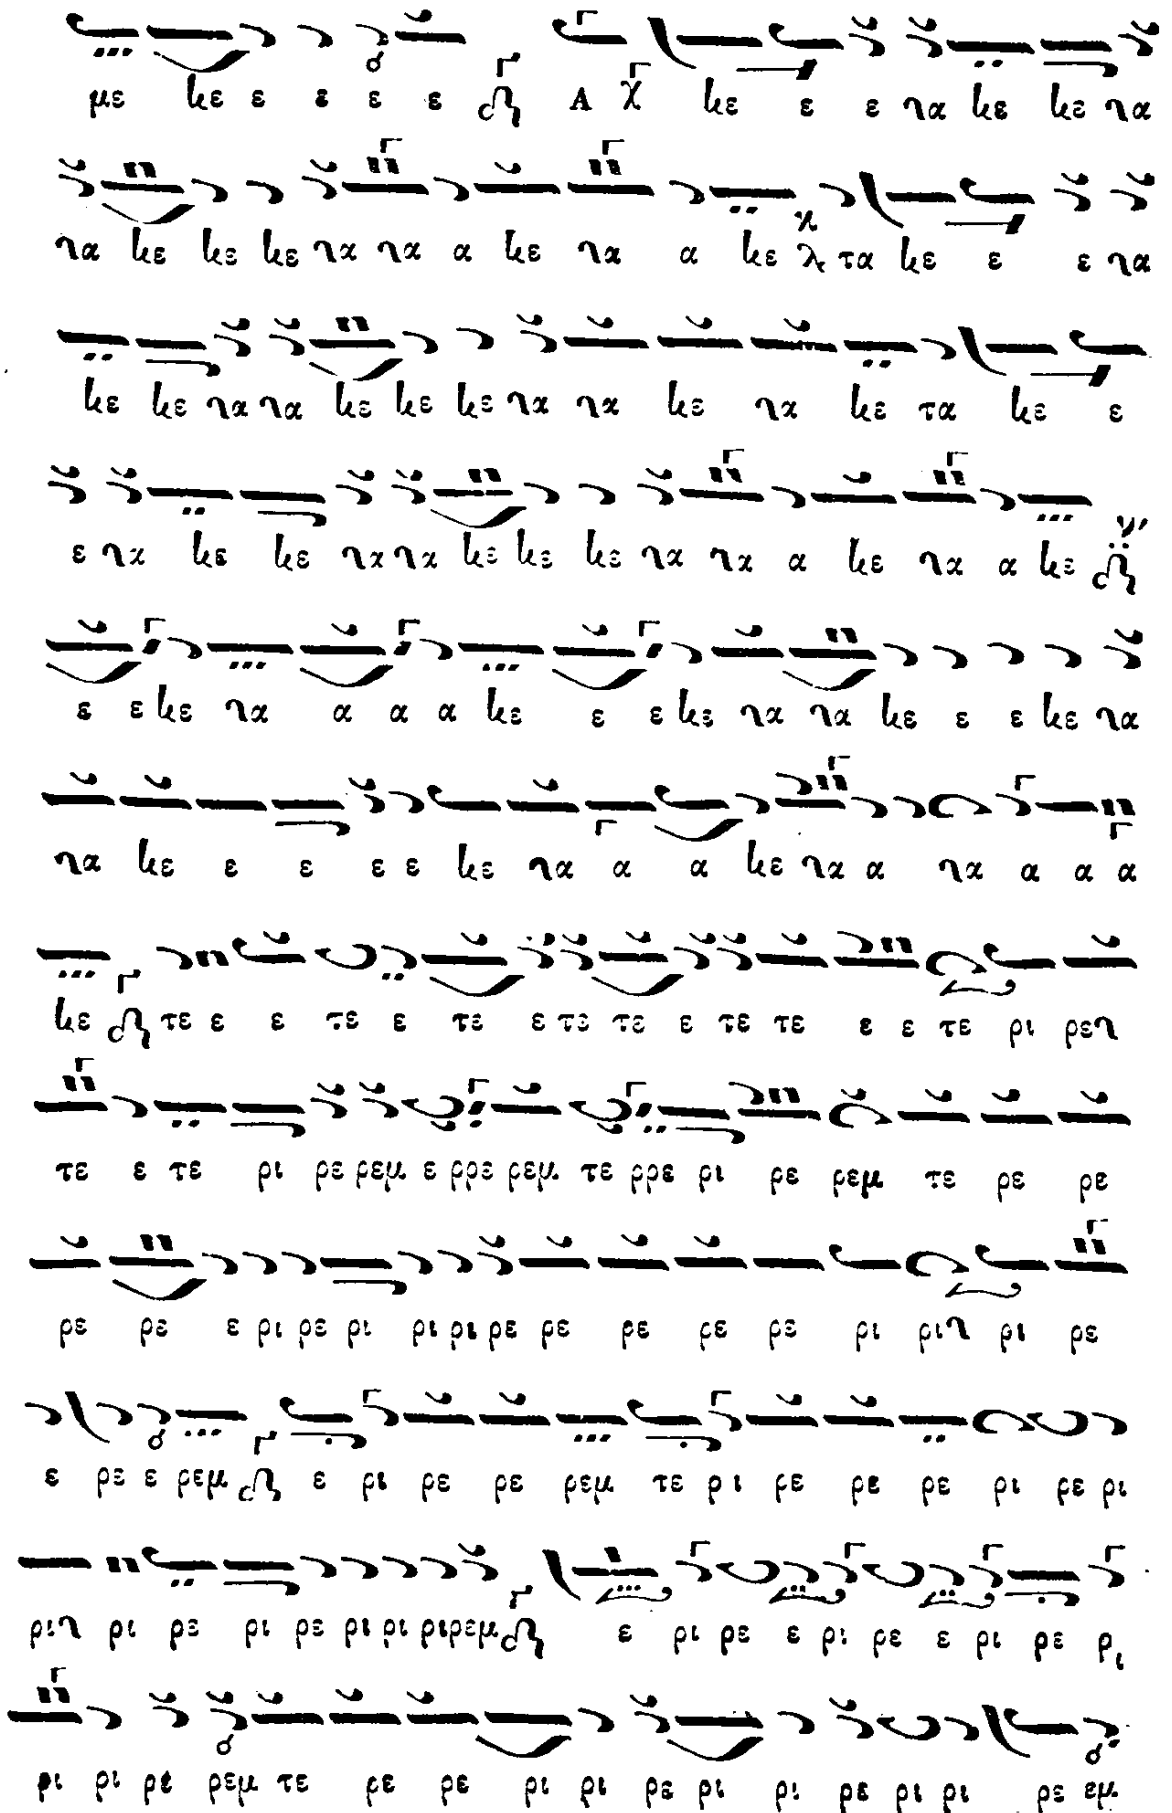 με νε ε ε ε ε Α νε ε ε να νε νε να
να νε νε νε να να α νε να α νε τα νε ε ε να
νε νε να να νε νε νε να να νε να νε τα νε ε
ε να νε νε να να νε νε νε να να α νε να α νε
ε ε νε να α α α νε ε ε νε να να νε ε ε νε να
να νε ε ε ε ε νε να α α νε να α να α α α
νε τε ε ε τε ε τε ε τε τε ε τε τε ε ε τε ρι ρεν
τε ε τε ρι ρε ρεμ ε ρρε ρεμ τε ρρε ρι ρε ρεμ τε ρε ρε
ρε ρε ε ρι ρε ρι ρι ρι ρε ρε ρε ρε ρε ρι ριν ρι ρε
ε ρε ε ρεμ ε ρι ρε ρε ρεμ τε ρι ρε ρε ρε ρι ρε ρι
ριν ρι ρε ρι ρε ρι ρι ρι ρεμ ε ρι ρε ε ρι ρε ε ρι ρε ρι
ρι ρι ρε ρεμ τε ρε ρε ρι ρι ρε ρι ρι ρε ρι ρι ρε εμ